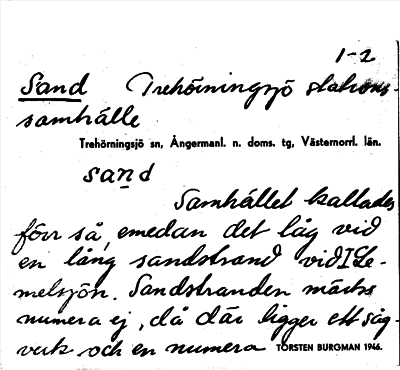 1-2
Sand Trehörningsjö stations-
samhälle
Trehörningsjö sn, Ångermanl. n. doms. tg, Västernorrl. län.
sand
Samhället kallades
förr så, emedan det låg vid
en lång sandstrand vid Le-
melsjön. Sandstranden märks
numera ej, då där ligger ett såg-
verk och en numera
TORSTEN BURGMAN 1946.